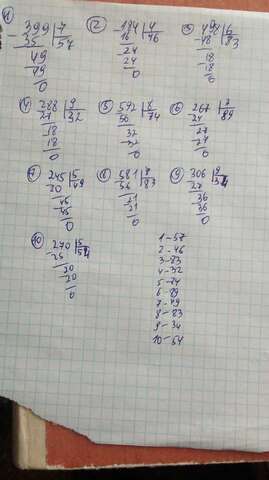 1) 399 | 7
- 35 | 57
- 49
49
0
2) - 184 | 4
16 | 46
- 24
24
0
3) - 498 | 6
48 | 83
- 18
18
0
4) - 288 | 9
27 | 32
- 18
18
0
5) - 592 | 8
56 | 74
- 32
32
0
6) - 267
24 | 89
- 27
27
0
7) - 245 | 5
20 | 49
- 45
45
0
8) - 581 | 7
56 | 83
- 21
21
0
9) 306 | 9
- 27 | 34
- 36
36
0
10) - 270 | 5
25 | 54
- 20
20
0
1 - 57
2 - 46
3 - 83
4 - 32
5 - 74
6 - 89
7 - 49
8 - 83
9 - 34
10 - 54